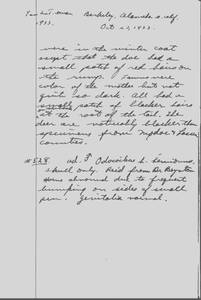 Berkeley, Alameda Co. Calif.
1933. Oct. 23, 1933.
were in the winter coat
except that the doe had a
small patch of red hairs on
the rump. Fawns were
color of the mother but not
quite so dark. All had a
small patch of blacker hairs
at the root of the tail. The
deer are noticeably blacker than
specimens from Modoc & Lassen
counties.
#528 ad. ♀ Odocoileus h.
skull only. Rec'd from Dr.
Horns abnormal due to frequent
bumping on sides of small
pen. Genitalia normal.